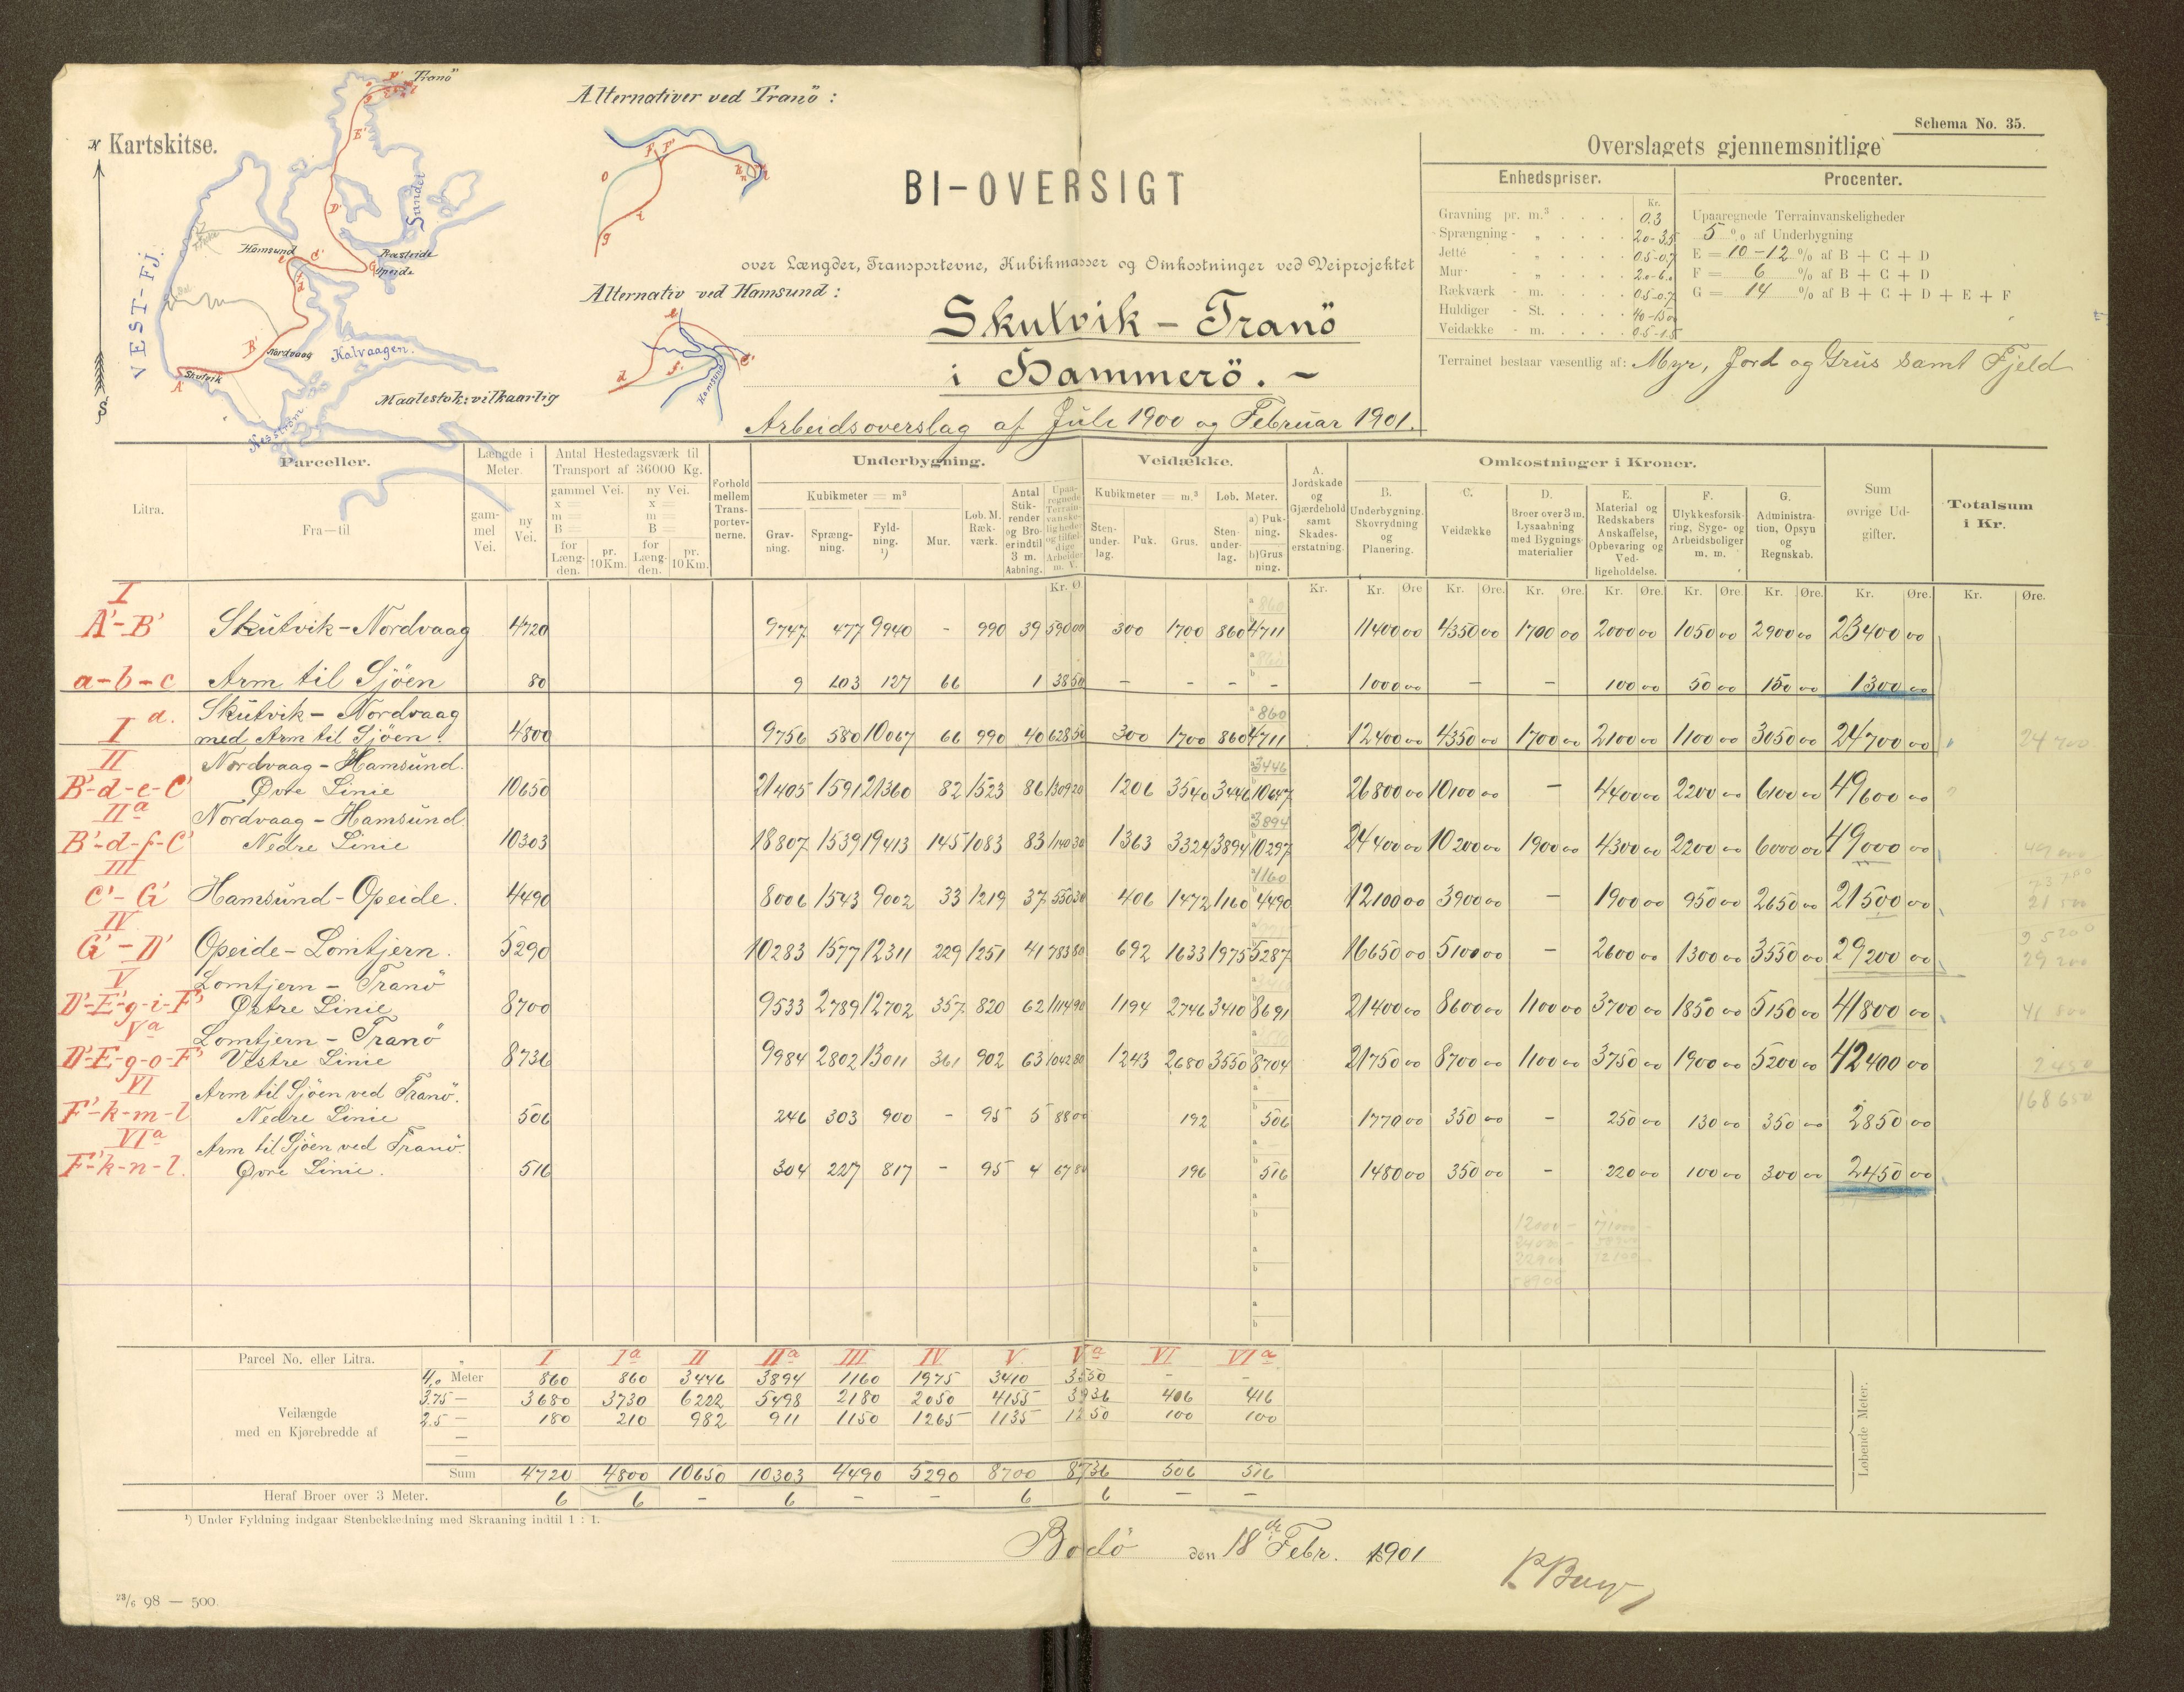 Kartskitse.
N
S
VEST-FJ.
Tranö
Sundet
Hamsund
Præsteide
Opeide
Nordvaag
Kalvaagen.
Skutvik
Maalestok: vilkaarlig
Alternativer ved Tranö:
Alternativ ved Hamsund:
Hamsund
BI-OVERSIGT
over Længder, Transportevne, Kubikmasser og Omkostninger ved Veiprojektet
Skutvik - Tranö
i Hammerö. -
Arbeidsoverslag af Juli 1900 og Februar 1901.
Schema No. 35.
Overslagets gjennemsnitlige
Enhedspriser.
Procenter.
Kr.
Gravning pr. m.³ 0.3
Sprængning - „ 2.0-3.5
Jetté - „ 0.5-0.7
Mur - „ 2.0-6.0
Rækværk - m. 0.5-0.7
Huldiger - St. 40-150
Veidække - m. 0.5-1.5
Upaaregnede Terrainvanskeligheder
5 % af Underbygning
E = 10-12 % af B + C + D
F = 6 % af B + C + D
G = 14 % af B + C + D + E + F
Terrainet bestaar væsentlig af: Myr, Jord og Grus samt Fjeld
Litra.
Parceller.
Fra—til
Længde i Meter.
gammel Vei.
ny Vei.
Antal Hestedagsværk til Transport af 36000 Kg.
gammel Vei. x = m = B =
ny Vei. x = m = B =
for Længden. pr. 10 Km. for Længden. pr. 10 Km.
Forhold mellem Transportevnerne.
Underbygning.
Kubikmeter = m³
Gravning. Sprængning. Fyldning. ¹) Mur.
Løb. M. Rækværk.
Antal Stikrender og Broer indtil 3 m. Aabning.
Upaaregnede Terrainvanskeligheder og tilfældige Arbeider m. V.
Veidække.
Kubikmeter = m.³ Løb. Meter.
Stenunderlag. Puk. Grus. Stenunderlag. a) Pukning. b) Grusning.
A. Jordskade og Gjærdehold samt Skadeserstatning.
Omkostninger i Kroner.
B. Underbygning. Skovrydning og Planering.
C. Veidække
D. Broer over 3 m. Lysaabning med Bygningsmaterialier
E. Material og Redskabers Anskaffelse, Opbevaring og Vedligeholdelse.
F. Ulykkesforsikring, Syge- og Arbeidsboliger m. m.
G. Administration, Opsyn og Regnskab.
Sum øvrige Udgifter.
Totalsum i Kr.
Kr. Ø. Kr. Kr. Øre Kr. Øre. Kr. Øre. Kr. Øre. Kr. Øre. Kr. Øre. Kr. Øre. Kr. Øre.
I
A'-B' Skutvik-Nordvaag 4720 9747 477 9940 - 990 39 590 00 300 1700 860 a 860 b 4711 11400 00 4350 00 1700 00 2000 00 1050 00 2900 00 23400 00
a-b-c Arm til Sjöen 80 9 103 127 66 1 38 50 - - - - 1000 00 - - 100 00 50 00 150 00 1300 00
I a. Skutvik - Nordvaag
med Arm til Sjöen. 4800 9756 580 10067 66 990 40 628 50 300 1700 860 a 860 b 4711 12400 00 4350 00 1700 00 2100 00 1100 00 3050 00 24700 00 24 700
II Nordvaag - Hamsund.
B'-d-e-C' Øvre Linie 10650 21405 1591 21360 82 1523 86 1309 20 1206 3540 3446 a 3446 b 10647 26800 00 10100 00 - 4400 00 2200 00 6100 00 49600 00
IIa Nordvaag - Hamsund.
B'-d-f-C' Nedre Linie 10303 18807 1539 19413 145 1083 83 1140 30 1363 3324 3894 a 3894 b 10297 24400 00 10200 00 1900 00 4300 00 2200 00 6000 00 49000 00 49 000
III
C'-G' Hamsund-Opeide. 4490 8006 1543 9002 33 1219 37 550 30 406 1472 1160 a 1160 b 4490 12100 00 3900 00 - 1900 00 950 00 2650 00 21500 00 21 500
IV
G'-D' Opeide-Lomtjern. 5290 10283 1577 12311 229 1251 41 783 80 692 1633 1975 5287 16650 00 5100 00 - 2600 00 1300 00 3550 00 29200 00 29 200
V Lomtjern - Tranö
D'-E'-g-i-F' Østre Linie 8700 9533 2789 12702 357 820 62 1114 90 1194 2746 3410 8691 21400 00 8600 00 1100 00 3700 00 1850 00 5150 00 41800 00 41 800
Va Lomtjern - Tranö
D'-E'-g-o-F' Vestre Linie 8736 9984 2802 13011 361 902 63 1042 80 1243 2680 3550 8704 21750 00 8700 00 1100 00 3750 00 1900 00 5200 00 42400 00 2450
VI Arm til Sjöen ved Tranö.
F'-k-m-l Nedre Linie 506 246 303 900 - 95 5 88 00 192 506 1770 00 350 00 - 250 00 130 00 350 00 2850 00 168 650
VIa Arm til Sjöen ved Tranö.
F'-k-n-l. Øvre Linie. 516 304 227 817 - 95 4 67 80 196 516 1480 00 350 00 - 220 00 100 00 300 00 2450 00
Parcel No. eller Litra. I Ia II IIa III IV V Va VI VIa
Veilængde med en Kjørebredde af
4,0 Meter 860 860 3446 3894 1160 1975 3410 3550 - -
3.75 — 3680 3730 6222 5498 2180 2050 4155 3936 406 416
2.5 — 180 210 982 911 1150 1265 1135 1250 100 100
Sum 4720 4800 10650 10303 4490 5290 8700 8736 506 516
Heraf Broer over 3 Meter. 6 6 - 6 - - 6 6 - -
Løbende Meter.
¹) Under Fyldning indgaar Stenbeklædning med Skraaning indtil 1 : 1.
Bodö den 18de Febr. 1901
23/6 98 — 500.